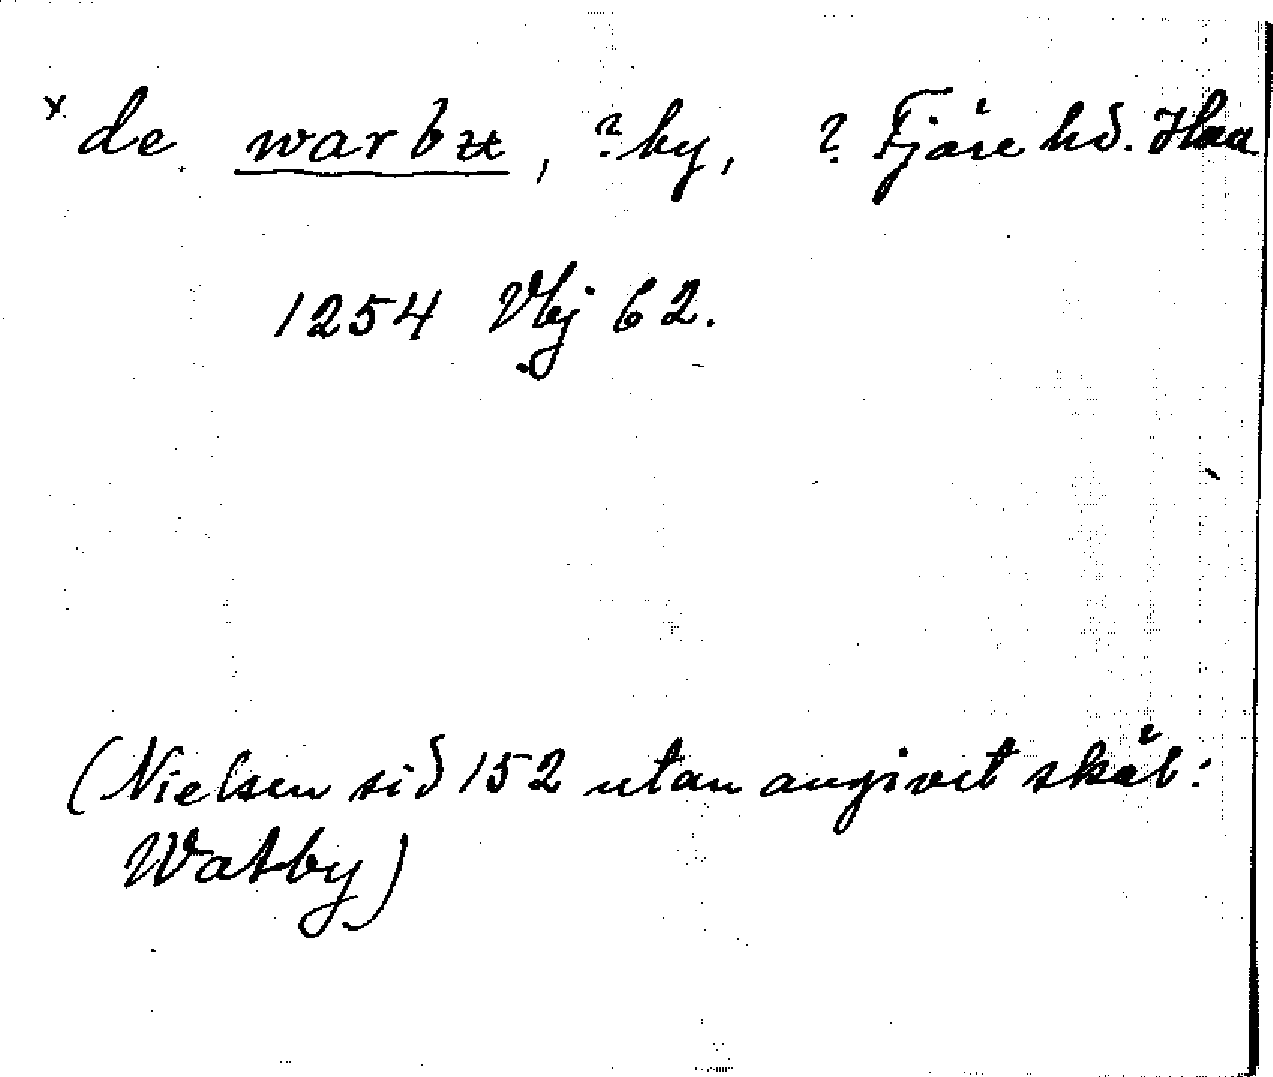 x de warbu, ?by, ? Fjäre hd. Hall
1254 Vbj 62.
(Nielsen sid 152 utan angivet skäl:
Watby)